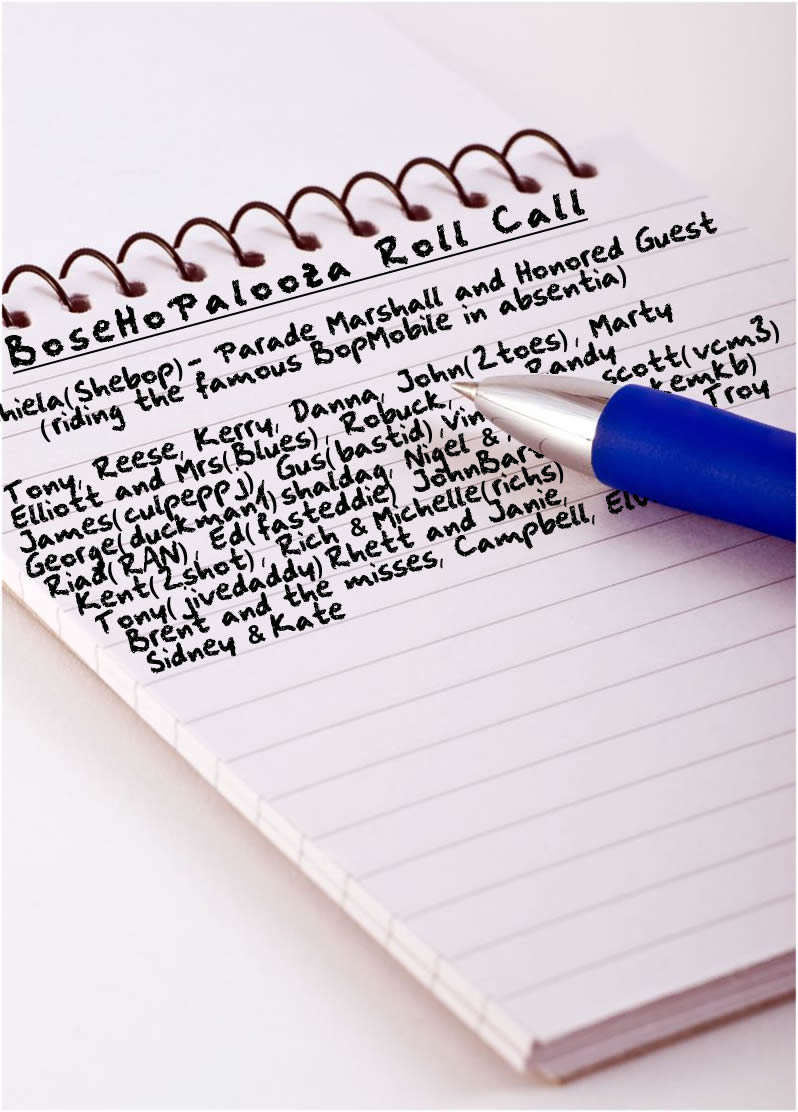 BoseHoPalooza Roll Call
hiela(Shebop)- Parade Marshall and Honored Guest
(riding the famous BopMobile in absentia)
Tony, Reese, Kerry, Danna, John(2toes), Marty
Elliott and Mrs(Blues), Robuck, Randy
James(culpeppJ), Gus(bastid), Vin scott(vcm3)
George(duckman1)shaldag, Nigel & kemkb)
Riad(RAN), Ed(fasteddie) JohnBart Troy
Kent(2shot), Rich & Michelle(richs)
Tony(jivedaddy)Rhett and Janie,
Brent and the misses, Campbell,
Sidney & Kate